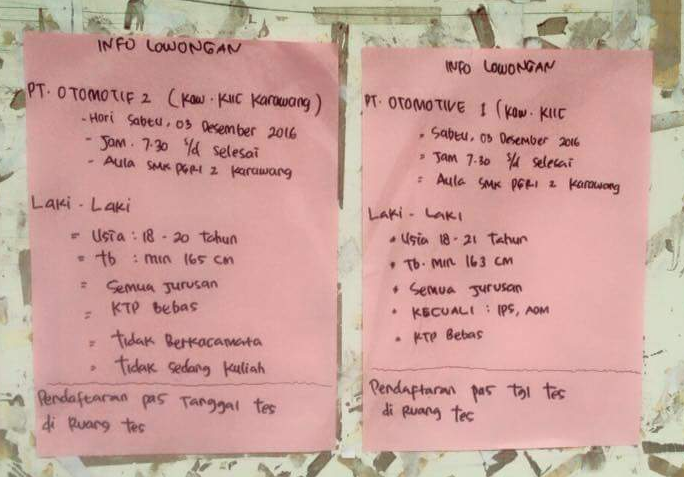 INFO LOWONGAN
PT. OTOMOTIF 2 (Kaw. KIIC Karawang)
- Hari Sabtu, 03 Desember 2016
- Jam. 7.30 s/d selesai
- Aula SMK PGRI 2 Karawang
Laki - Laki
= Usia : 18 - 20 Tahun
= tb : min 165 cm
= Semua jurusan
= KTP Bebas
= tidak Berkacamata
= tidak sedang kuliah
Pendaftaran pas Tanggal tes
di Ruang tes
INFO LOWONGAN
PT. OTOMOTIVE 1 (Kaw. KIIC
= Sabtu, 03 Desember 2016
= Jam 7.30 s/d selesai
= Aula SMK PGRI 2 Karawang
Laki - Laki
• Usia 18 - 21 Tahun
• Tb. Min 163 cm
• Semua Jurusan
• KECUALI : IPS, ADM
• KTP Bebas
Pendaftaran pas tgl tes
di Ruang tes